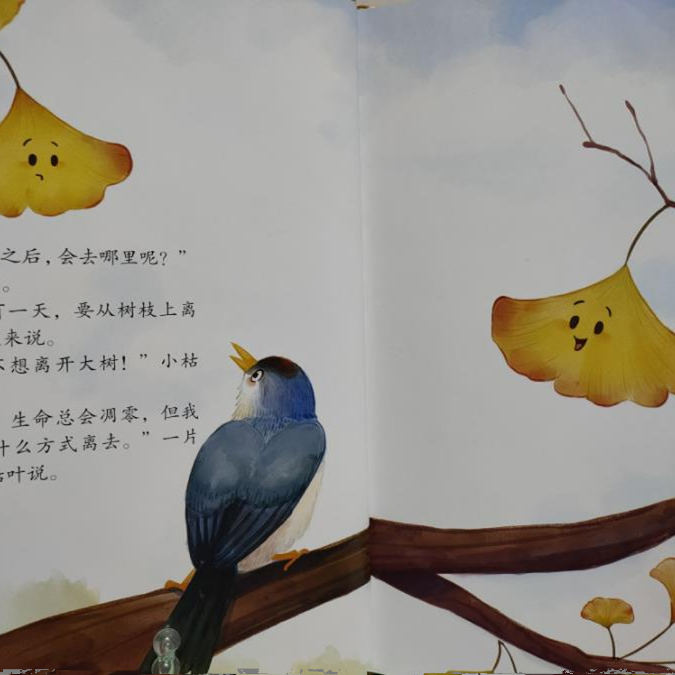 之后，会去哪里呢？”
。
一天，要从树枝上离
来说。
想离开大树！”小枯
生命总会凋零，但我
什么方式离去。”一片
叶说。